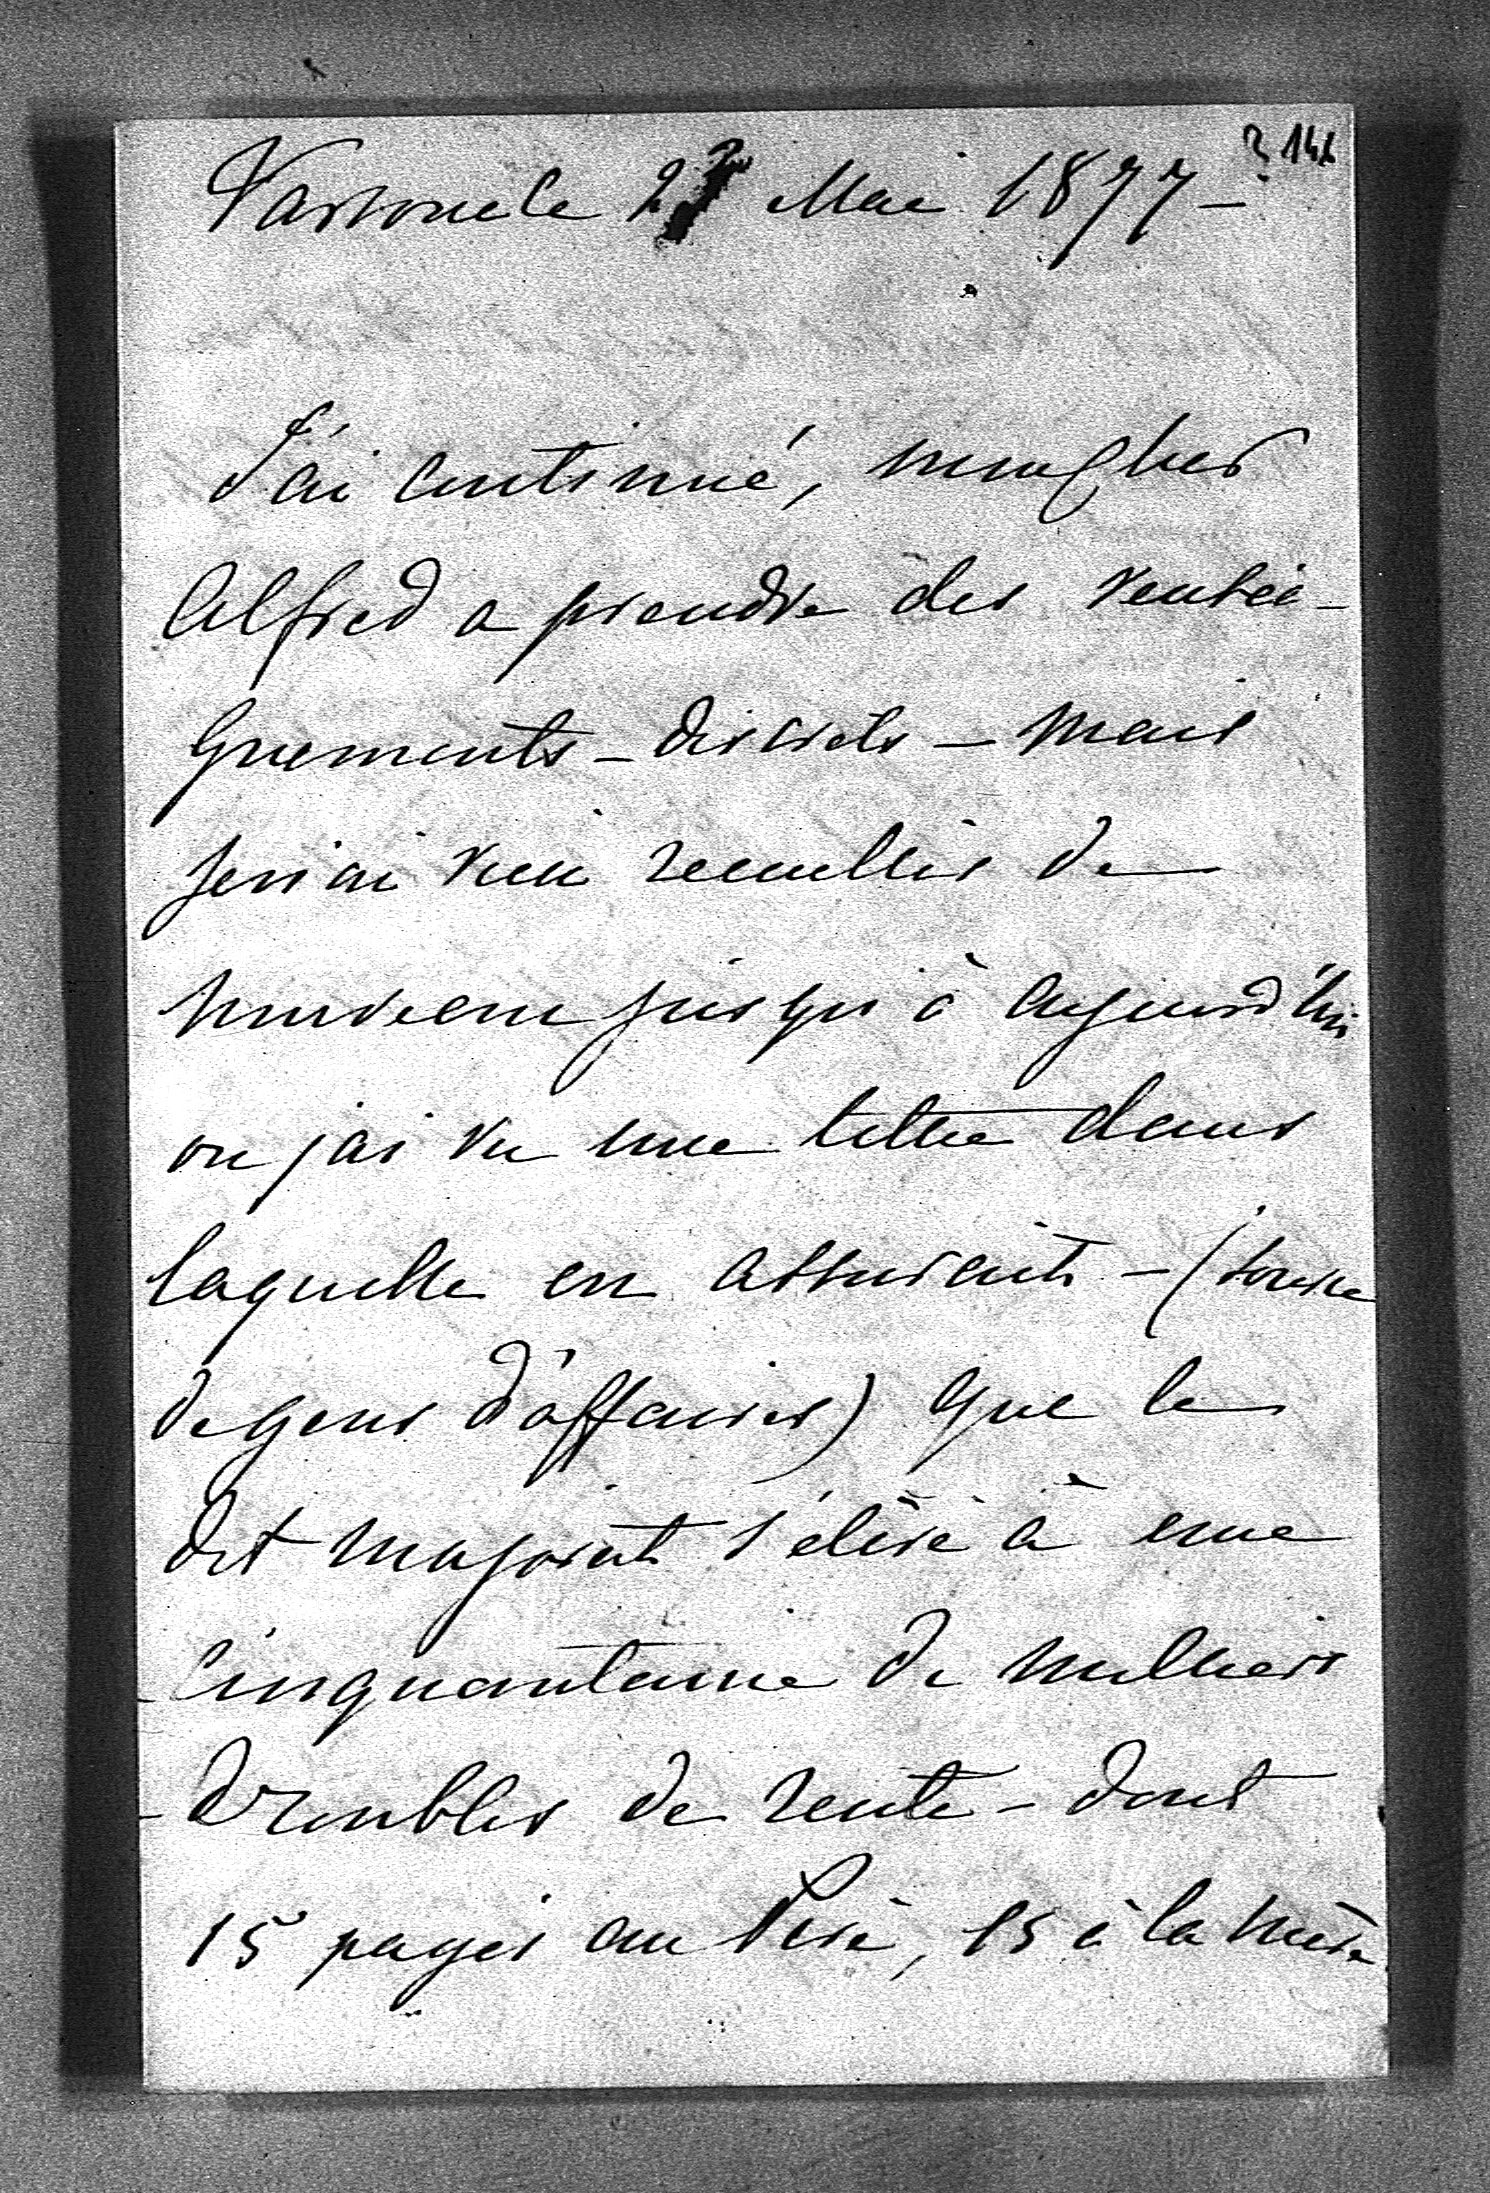 Varsovie le 27 Mai 1877 -
J'ai continué, mon cher
Alfred a prendre des rensei-
gnements - discrets - mais
je n'ai rien recuellir de
nouveau jusqu'à aujourd'hui
ou j'ai vu une lettre dans
laquelle on assurait - (source
de gens d'affaires) que le
dit majorat s'élève à une
cinquantaine de milliers
d roubles de rente - dont
15 payés au Père, 15 à la mère